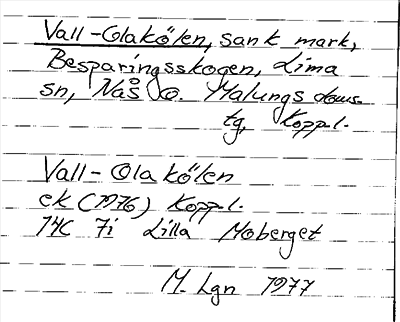 Vall-Olakölen, sank mark,
Besparingsskogen, Lima
sn, Nås o. Malungs doms-
tg, Koppl.
Vall-Olakölen
ek (1976) Koppl.
14C 7i Lilla Moberget
M. Lgn 1977